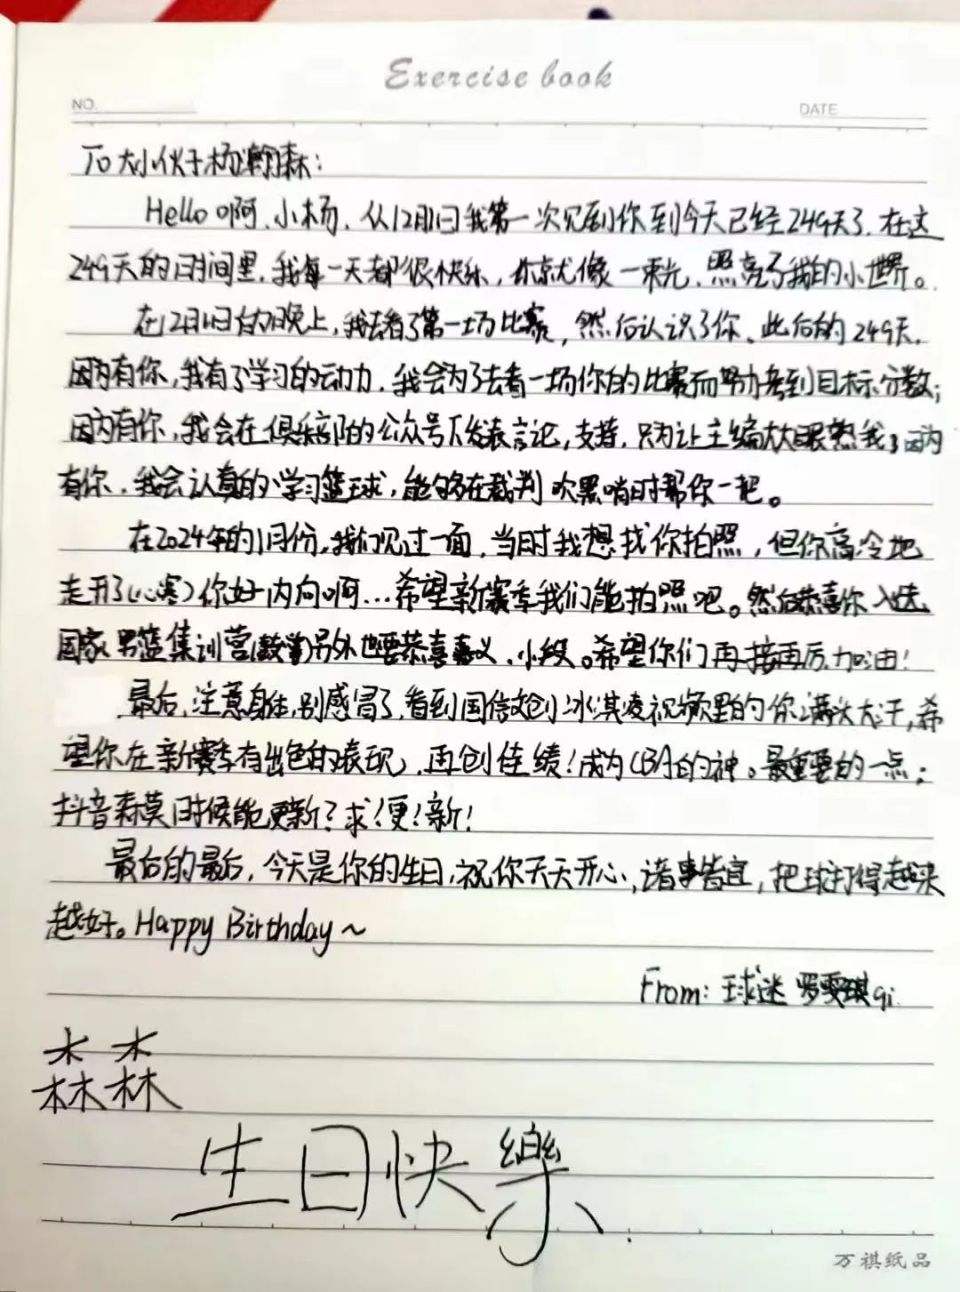 Exercise book
NO.
DATE
To 大小伙子杨瀚森：
Hello 啊、小杨、从12月11日我第一次见到你到今天已经249天了，在这
249天的时间里，我每一天都很快乐，你就像一束光，照亮了我的小世界。
在12月11日的晚上，我去看了第一场比赛，然后认识了你、此后的249天，
因为有你，我有了学习的动力，我会为了去看一场你的比赛而努力考到目标分数；
因为有你，我会在俱乐部的公众号下发表言论，支持，只为让主编大大眼熟我；因为
有你，我会认真的学习篮球，能够在裁判吹黑哨时帮你一把。
在2024年的1月份，我们见过一面，当时我想找你拍照，但你高冷地
走开了（心寒）你好内向啊...希望新赛季我们能拍照吧。然后恭喜你入选
国家男篮集训营 另外也要恭喜 义、小段。希望你们再接再厉，加油！
最后，注意身体，别感冒了，看到国信文创冰淇凌视频里的你满头大汗，希
望你在新赛季有出色的表现，再创佳绩！成为CBA的神。最重要的一点：
抖音森莫时候能更新？求！更！新！
最后的最后，今天是你的生日，祝你天天开心，诸事皆宜，把球打得越来
越好。Happy Birthday～
From：球迷 罗雯琪qi
森森
生日快樂
万祺纸品